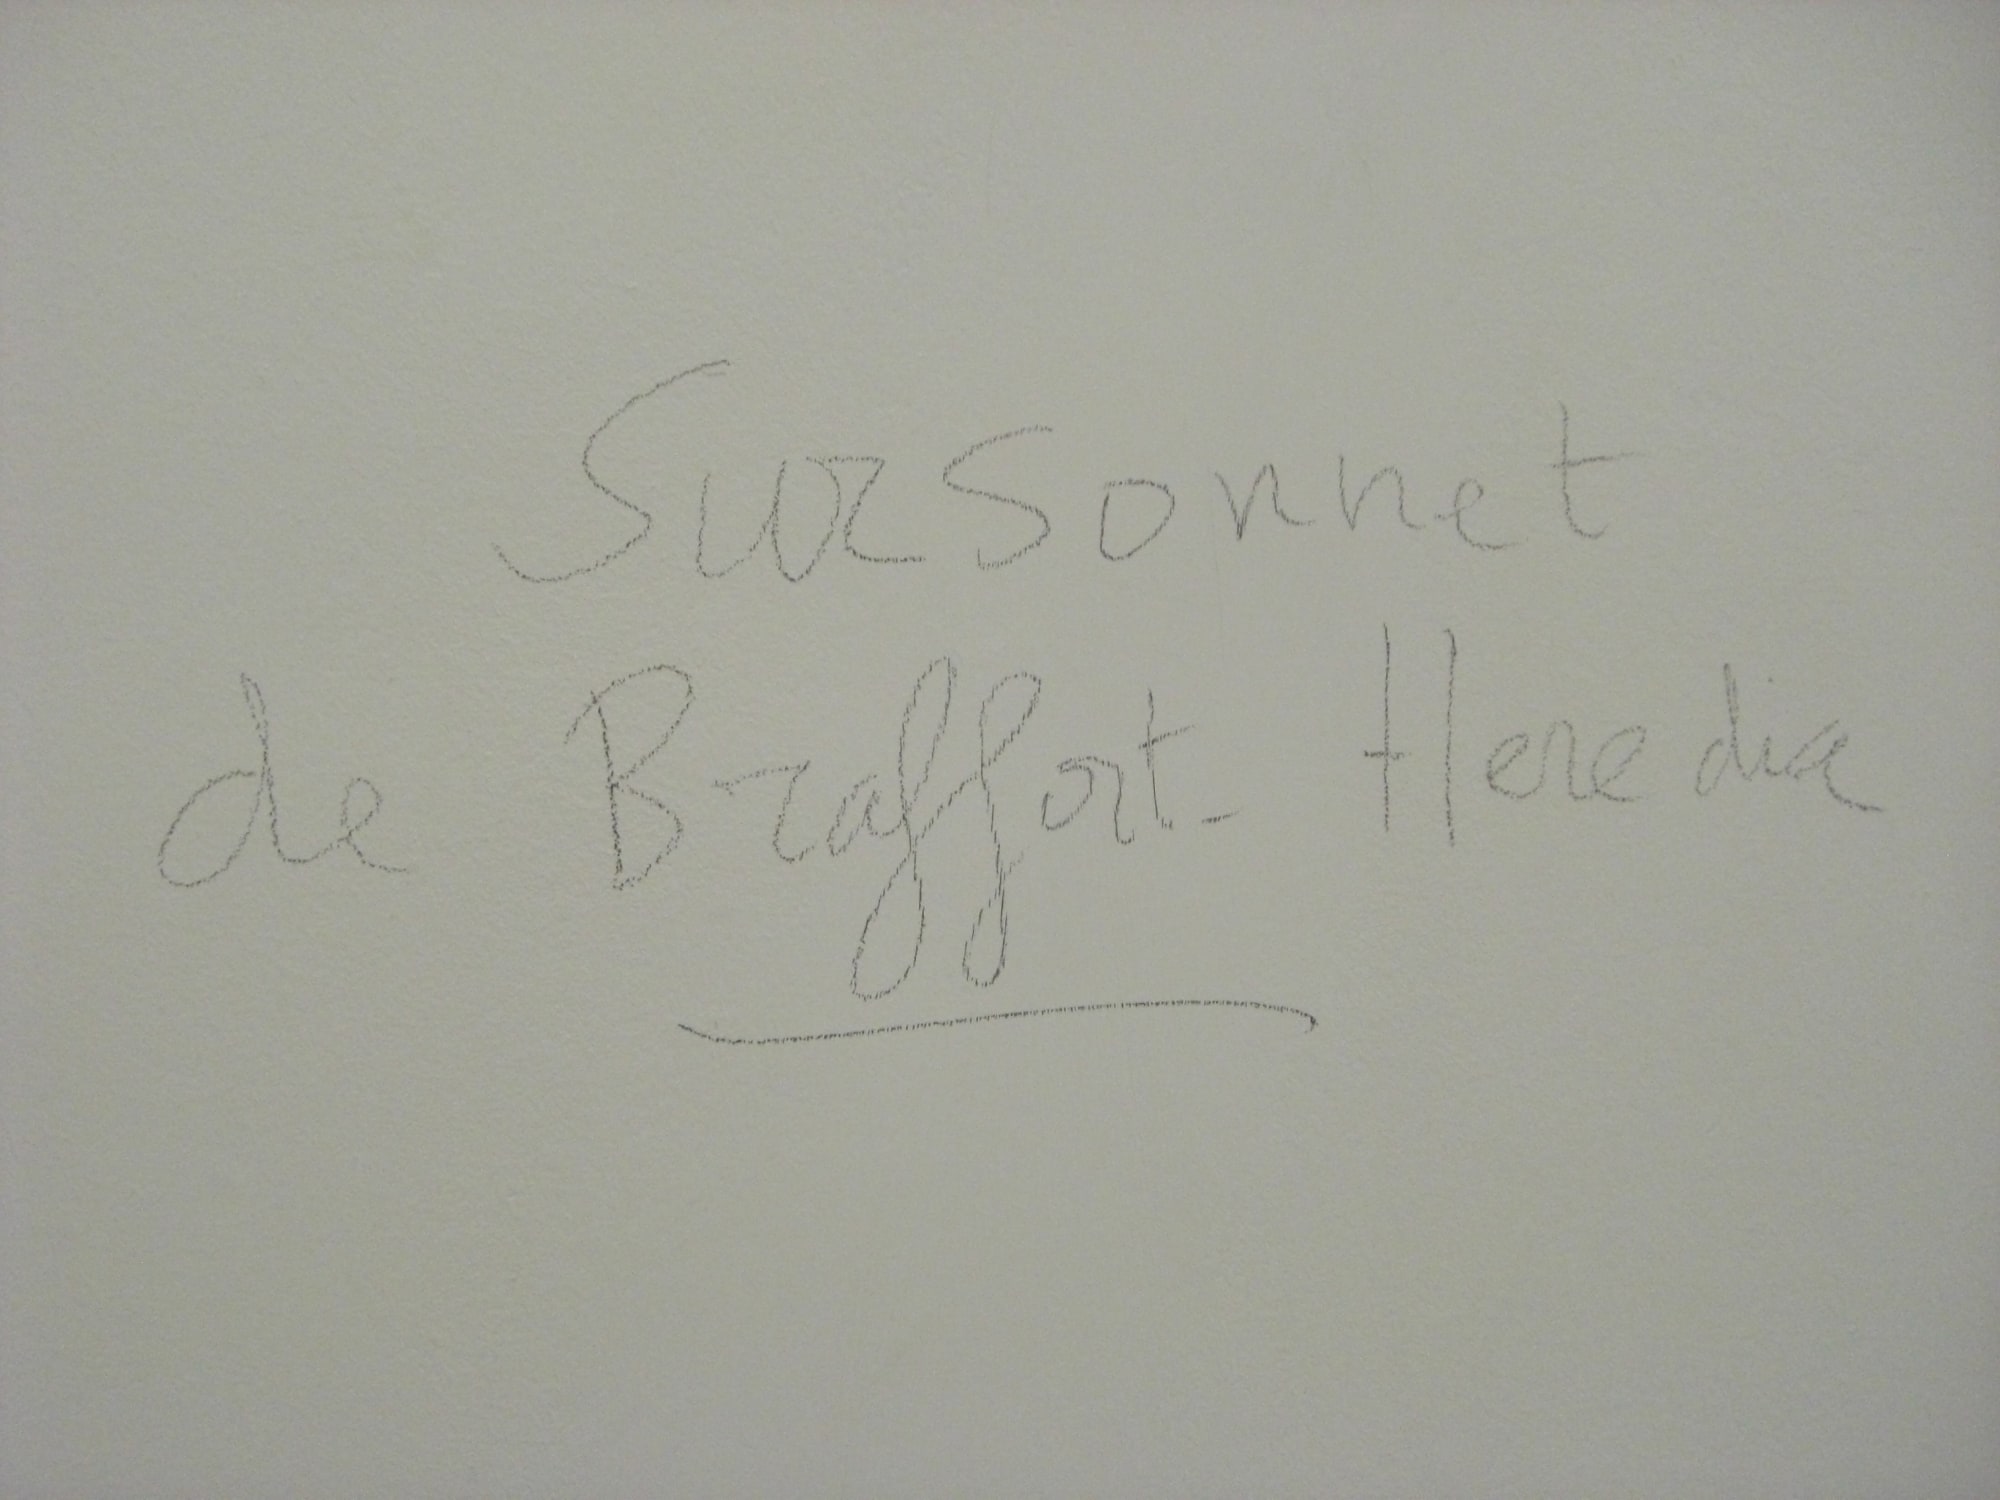 Sursonnet
de Braffort-Heredia